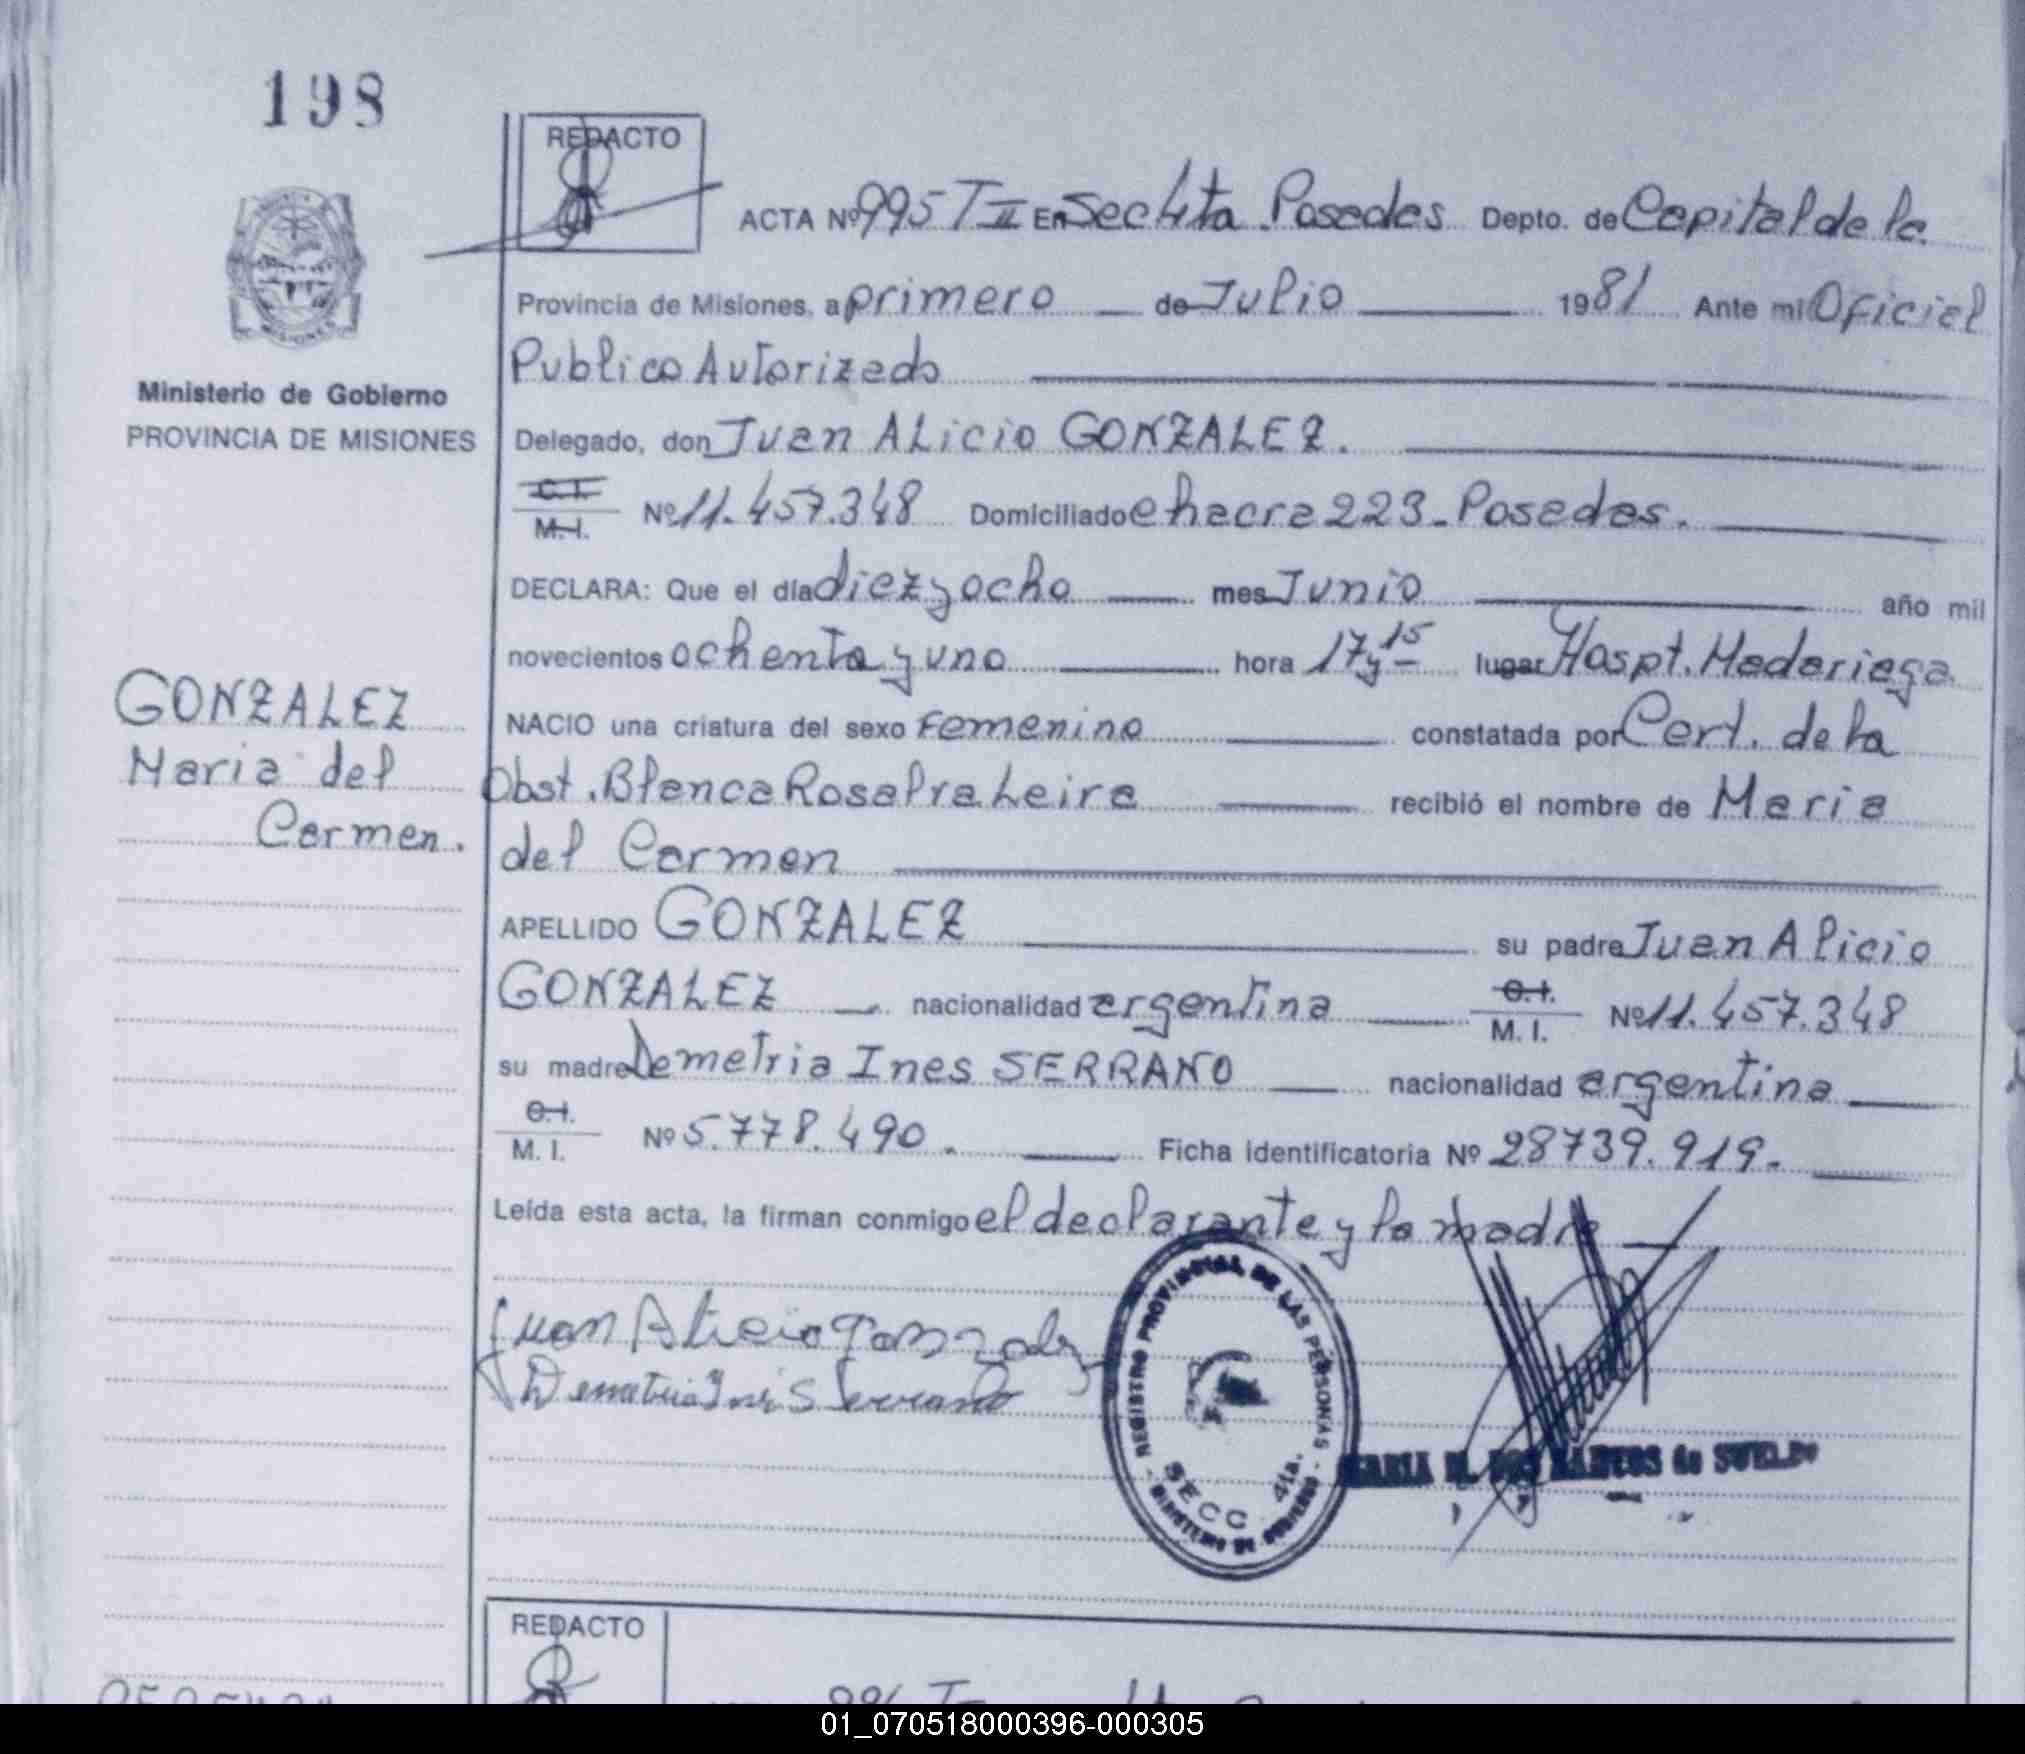 198
REDACTO
ACTA Nº 995 T II En Sec 4ta Posadas Depto. de Capital de la
Provincia de Misiones, a primero de Julio 1981 Ante mi Oficial
Publico Autorizado
Ministerio de Gobierno
PROVINCIA DE MISIONES
Delegado, don Juan ALicio GONZALEZ.
C. I.
M. I.
Nº 11.457.348 Domiciliado chacra 223. Posadas.
DECLARA: Que el día diez y ocho mes Junio año mil
novecientos ochenta y uno hora 17 y 15 lugar Hospt. Madariaga
GONZALEZ
Maria del
Carmen.
NACIO una criatura del sexo Femenino constatada por Cert. de la
Obst. Blanca Rosa Leira recibió el nombre de Maria
del Carmen
APELLIDO GONZALEZ su padre Juan Alicio
GONZALEZ nacionalidad argentina C. I. Nº 11.457.348
M. I.
su madre Demetria Ines SERRANO nacionalidad argentina
C. I.
M. I.
Nº 5.778.490. Ficha identificatoria Nº 28739.919.
Leída esta acta, la firman conmigo el declarante y la madre
Juan Alicio Gonzalez
Demetria Ines Serrano
REGISTRO PROVINCIAL DE LAS PERSONAS
SECC. 4ta.
MINISTERIO DE GOBIERNO
MARIA M. DOS SANTOS de SUELDO
REDACTO
01_070518000396-000305